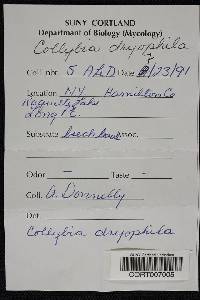 SUNY CORTLAND
Department of Biology (Mycology)
Collybia dryophila
Coll nbr 5 ALD Date 8/23/91
Location NY Hamilton Co
Raquette Lake
Long Pt.
Substrate beech leaves Assoc.
Odor — Taste —
Coll. A. Donnelly
Det
Collybia dryophila
SUNY Cortland
CORTD07005